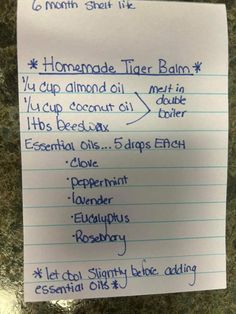 6 month shelf life
*Homemade Tiger Balm*
1/4 cup almond oil
1/4 cup coconut oil
1 tbs beeswax
melt in
double
boiler
Essential oils... 5 drops EACH
·Clove
·peppermint
·lavender
·Eucalyptus
·Rosemary
*let cool slightly before adding
essential oils*